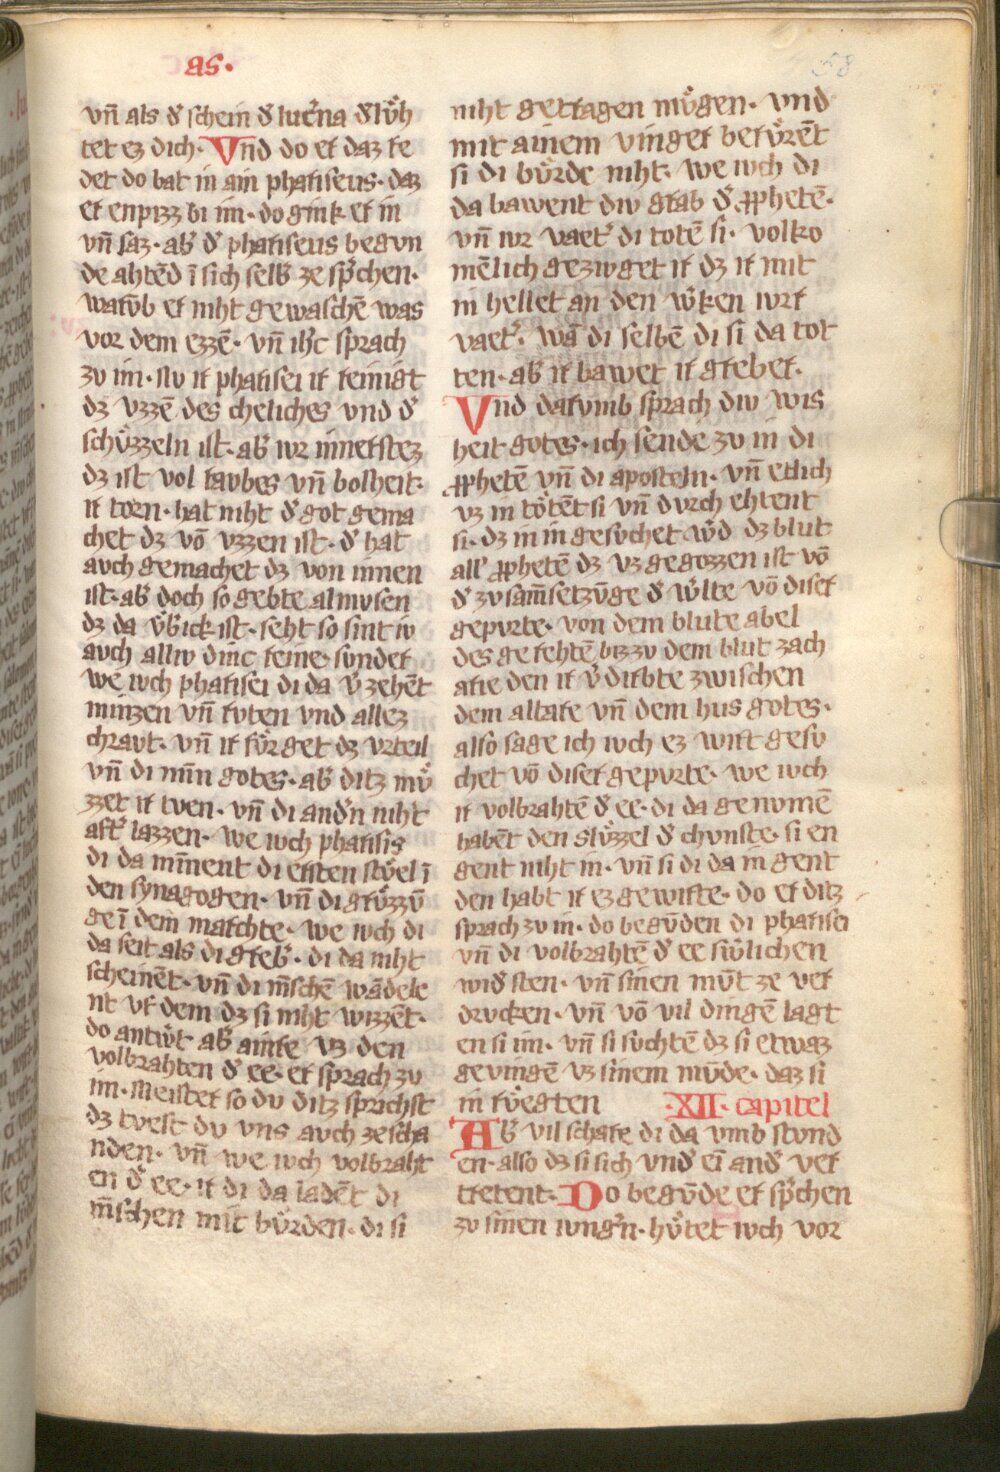 as.
58
vn̄ als d̕ schein d̕ luc̕na d̕lv̊h
tet ez dich. Vnd do er daz re
det do bat in ain phariseus. daz
er enpizz bi im. do gink er in
vn̄ saz. ab̕ d̕ phariseus begvn
de ahtēd ī sich selb̕ ze sp̕chen.
warv̄b er niht gewaschē was
vor dem ezzē. vn̄ ih̕c sprach
zv im. Nv ir pharisei ir reinigt
dz vzzē des cheliches vnd d̕
schv̊zzeln ist. ab̕ iwr innerstez
dz ist vol ravbes vn̄ bosheit.
ir torn. hat niht d̕ got gema
chet dz vō vzzen ist. d̕ hat
avch gemachet dz von innen
ist. ab̕ doch so gebte almvsen
dz da v̕b̕ick ist. seht so sint iv
avch alliv dinc reine. sunder
we iwch pharisei di da v̕zehēt
minzen vn̄ rvten vnd allez
chravt. vn̄ ir fv̊rget dz vrteil
vn̄ di min̄ gotes. ab̕ ditz mv̊
zzet ir tven. vn̄ di and̕n niht
aft̕ lazzen. we iwch pharisig
di da min̄ent di ersten stv̊el ī
den synagogen. vn̄ di grv̊zzv̄
ge ī dem marchte. we iwch di
da seit als di greb̕. di da niht
scheinēt. vn̄ di m̄schē wādele
nt vf dem dz si niht wizzēt.
do antw̕t ab̕ ainre vz den
volbrahten d̕ ee. er sprach zv
im. Meister so dv ditz sprichst
dz tvest dv vns avch zescha
nden. vn̄ we iwch volbraht
en d̕ ee. ir di da ladēt di
m̄schen mit bv̊rden. di si
niht getragen mv̊gen. vnd
mit ainem vinger berv̊rēt
si di bv̊rde niht. we iwch di
da bawent div grab d̕ ꝓphetē.
vn̄ iwr vaet̕ di totē si. volko
mēlich gezivget ir dz ir mit
in hellet an den w̕ken iwrr
vaet̕. wā di selbē di si da tot
ten. ab̕ ir bawet ir greber.
Vnd darvmb sprach div wis
heit gotes. ich sende zv in di
ꝓphetē vn̄ di aposteln. vn̄ etlich
vz in tȯtēt si vn̄ dvrch ehtent
si. dz in in gesvchet w̕d dz blut
all̕ ꝓphetē dz vz gegozzen ist vō
d̕ zv sam̄setzv̄ge d̕ w̕lte vō diser
gepvrte. von dem blute abel
des gerehtē biz zv dem blut zach
arie den ir v̕dirbte zwischen
dem altare vn̄ dem hus gotes.
also sage ich iwch ez wirt gesv
chet vō diser gepvrte. we iwch
ir volbrahtē d̕ ee. di da genvmē
habēt den slv̊zzel d̕ chvnste. si en
gent niht in. vn̄ si di da in gent
den habt ir ez gewirte. do er ditz
sprach zv in. do begv̄den di pharisei
vn̄ di volbrahtē d̕ ee sw̕lichen
wid̕ sten. vn̄ sinen mv̄t ze ver
drvcken. vn̄ vō vil dingē lagt
en si im. vn̄ si svchtē dz si etwaz
gevingē vz sinem mv̄de. daz si
in rv̊gten .XII. capitel
Ab̕ vil schare di da vmb stvnd
en. also dz si sich vnd̕ ei̅ and̕ ver
tretent. Do begv̄de er sp̕chen
zv sinen ivng̕n. hv̊tet iwch vor